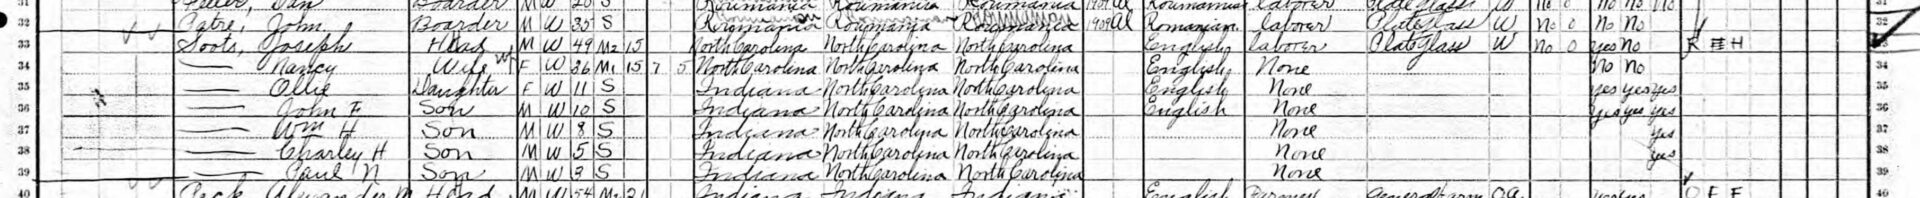 31 Boarder M W S Roumania Roumania Roumania 1909 Al Roumanian laborer Plate Glass W No 0 No No No 31
32 Catre, John Boarder M W 35 S Roumania Roumania Roumania 1909 Al Romanian laborer Plate Glass W No 0 No No 32
33 Soots, Joseph Head M W 49 M2 15 North Carolina North Carolina North Carolina English laborer Plate Glass W No 0 yes No R H 33
34 — Nancy Wife F W 36 M1 15 7 5 North Carolina North Carolina North Carolina English None No No 34
35 — Ollie Daughter F W 11 S Indiana North Carolina North Carolina English None yes yes yes 35
36 — John F Son M W 10 S Indiana North Carolina North Carolina English None yes yes yes 36
37 — Wm H Son M W 8 S Indiana North Carolina North Carolina None yes 37
38 — Charley H Son M W 5 S Indiana North Carolina North Carolina None yes 38
39 — Paul N Son M W 3 S Indiana North Carolina North Carolina None 39
40 Peck, Alexander M Head M W 54 M2 Indiana Indiana Indiana English Farmer General Farm OA O F F 40